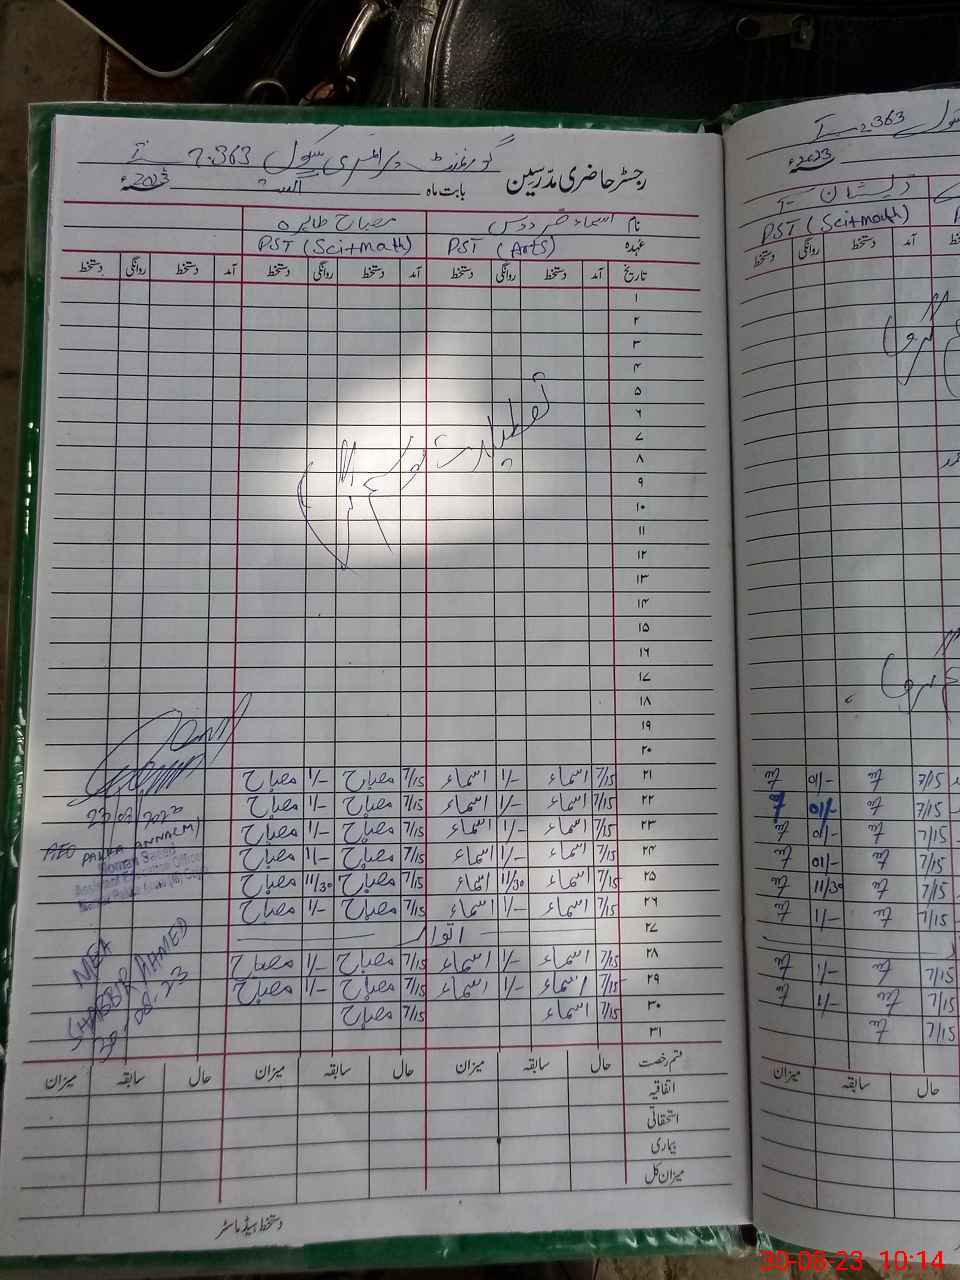 گورنمنٹ پرائمری سکول 363
رجسٹر حاضری مدرسین
بابت ماہ اگست 2023ء
نام اسماء فردوس مصباح طاہرہ
عہدہ PST (Arts) PST (Sci+math)
تاریخ آمد دستخط روانگی دستخط آمد دستخط روانگی دستخط آمد دستخط روانگی دستخط
۱
۲
۳
۴
۵
۶
۷
۸
۹
۱۰
۱۱
۱۲
۱۳
۱۴
۱۵
۱۶
۱۷
۱۸
۱۹
۲۰
تعطیلات موسم گرما
۲۱ 7/15 اسماء 1/- اسماء 7/15 مصباح 1/- مصباح
۲۲ 7/15 اسماء 1/- اسماء 7/15 مصباح 1/- مصباح
۲۳ 7/15 اسماء 1/- اسماء 7/15 مصباح 1/- مصباح
۲۴ 7/15 اسماء 1/- اسماء 7/15 مصباح 1/- مصباح
۲۵ 7/15 اسماء 11/30 اسماء 7/15 مصباح 11/30 مصباح
۲۶ 7/15 اسماء 1/- اسماء 7/15 مصباح 1/- مصباح
۲۷ اتوار
۲۸ 7/15 اسماء 1/- اسماء 7/15 مصباح 1/- مصباح
۲۹ 7/15 اسماء 1/- اسماء 7/15 مصباح 1/- مصباح
۳۰ 7/15 اسماء 7/15 مصباح
۳۱
AEO PAKKA ANNA(M)
Noman Saeed
Assistant Education Officer
MEA
SHABBIR AHMED
29-08-23
قسم رخصت حال سابقہ میزان حال سابقہ میزان حال سابقہ میزان
اتفاقیہ
استحقاقی
بیماری
میزان کل
دستخط ہیڈ ماسٹر
363
2023ء
ذیشان
PST (Sci+math)
آمد دستخط روانگی دستخط
گرما
گرما
7/15 10/-
7/15 10/-
7/15 10/-
7/15 10/-
7/15 11/30
7/15 1/-
7/15 1/-
7/15 1/-
7/15
حال سابقہ میزان
30-08-23 10:14